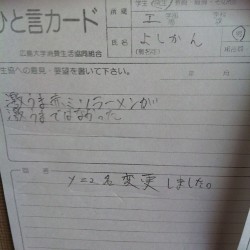 ひと言カード
広島大学消費生活協同組合
氏名
よしかん
生協への意見・要望を書いて下さい。
激うま赤ミソラーメンが
激うまではなかった
メニュー名変更しました。